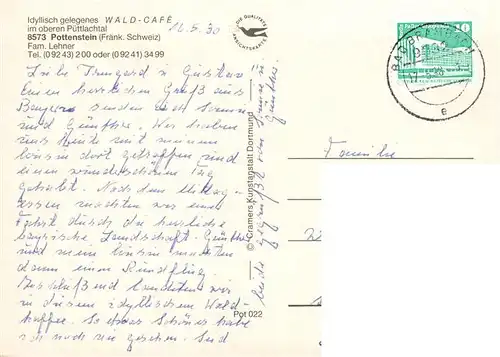 Idyllisch gelegenes WALD-CAFÉ
im oberen Püttlachtal
8573 Pottenstein (Fränk. Schweiz)
Fam. Lehner
Tel. (09243) 200 oder (09241) 3499
16.5.90
DIE QUALITÄTS
ANSICHTSKARTE
Liebe Irmgard u Günther
Einen herrlichen Gruß aus
Bayern senden euch
und Günther. Wir haben
uns Heute mit meinem
Cousin dort getroffen und
einen wunderschönen Tag
gehabt. Nach dem Mittag-
essen machten wir eine
Fahrt durch die herrliche
bayrische Landschaft. Günther
und mein Cousin machten
dann einen Rundflug.
Zum Schluß landeten wir
in diesem idyllischen Wald-
kaffee. So etwas Schönes habe
ich noch nie gesehen. Seid
© Cramers Kunstanstalt Dortmund
Pot 022
BAD BRAMBACH
10
Familie